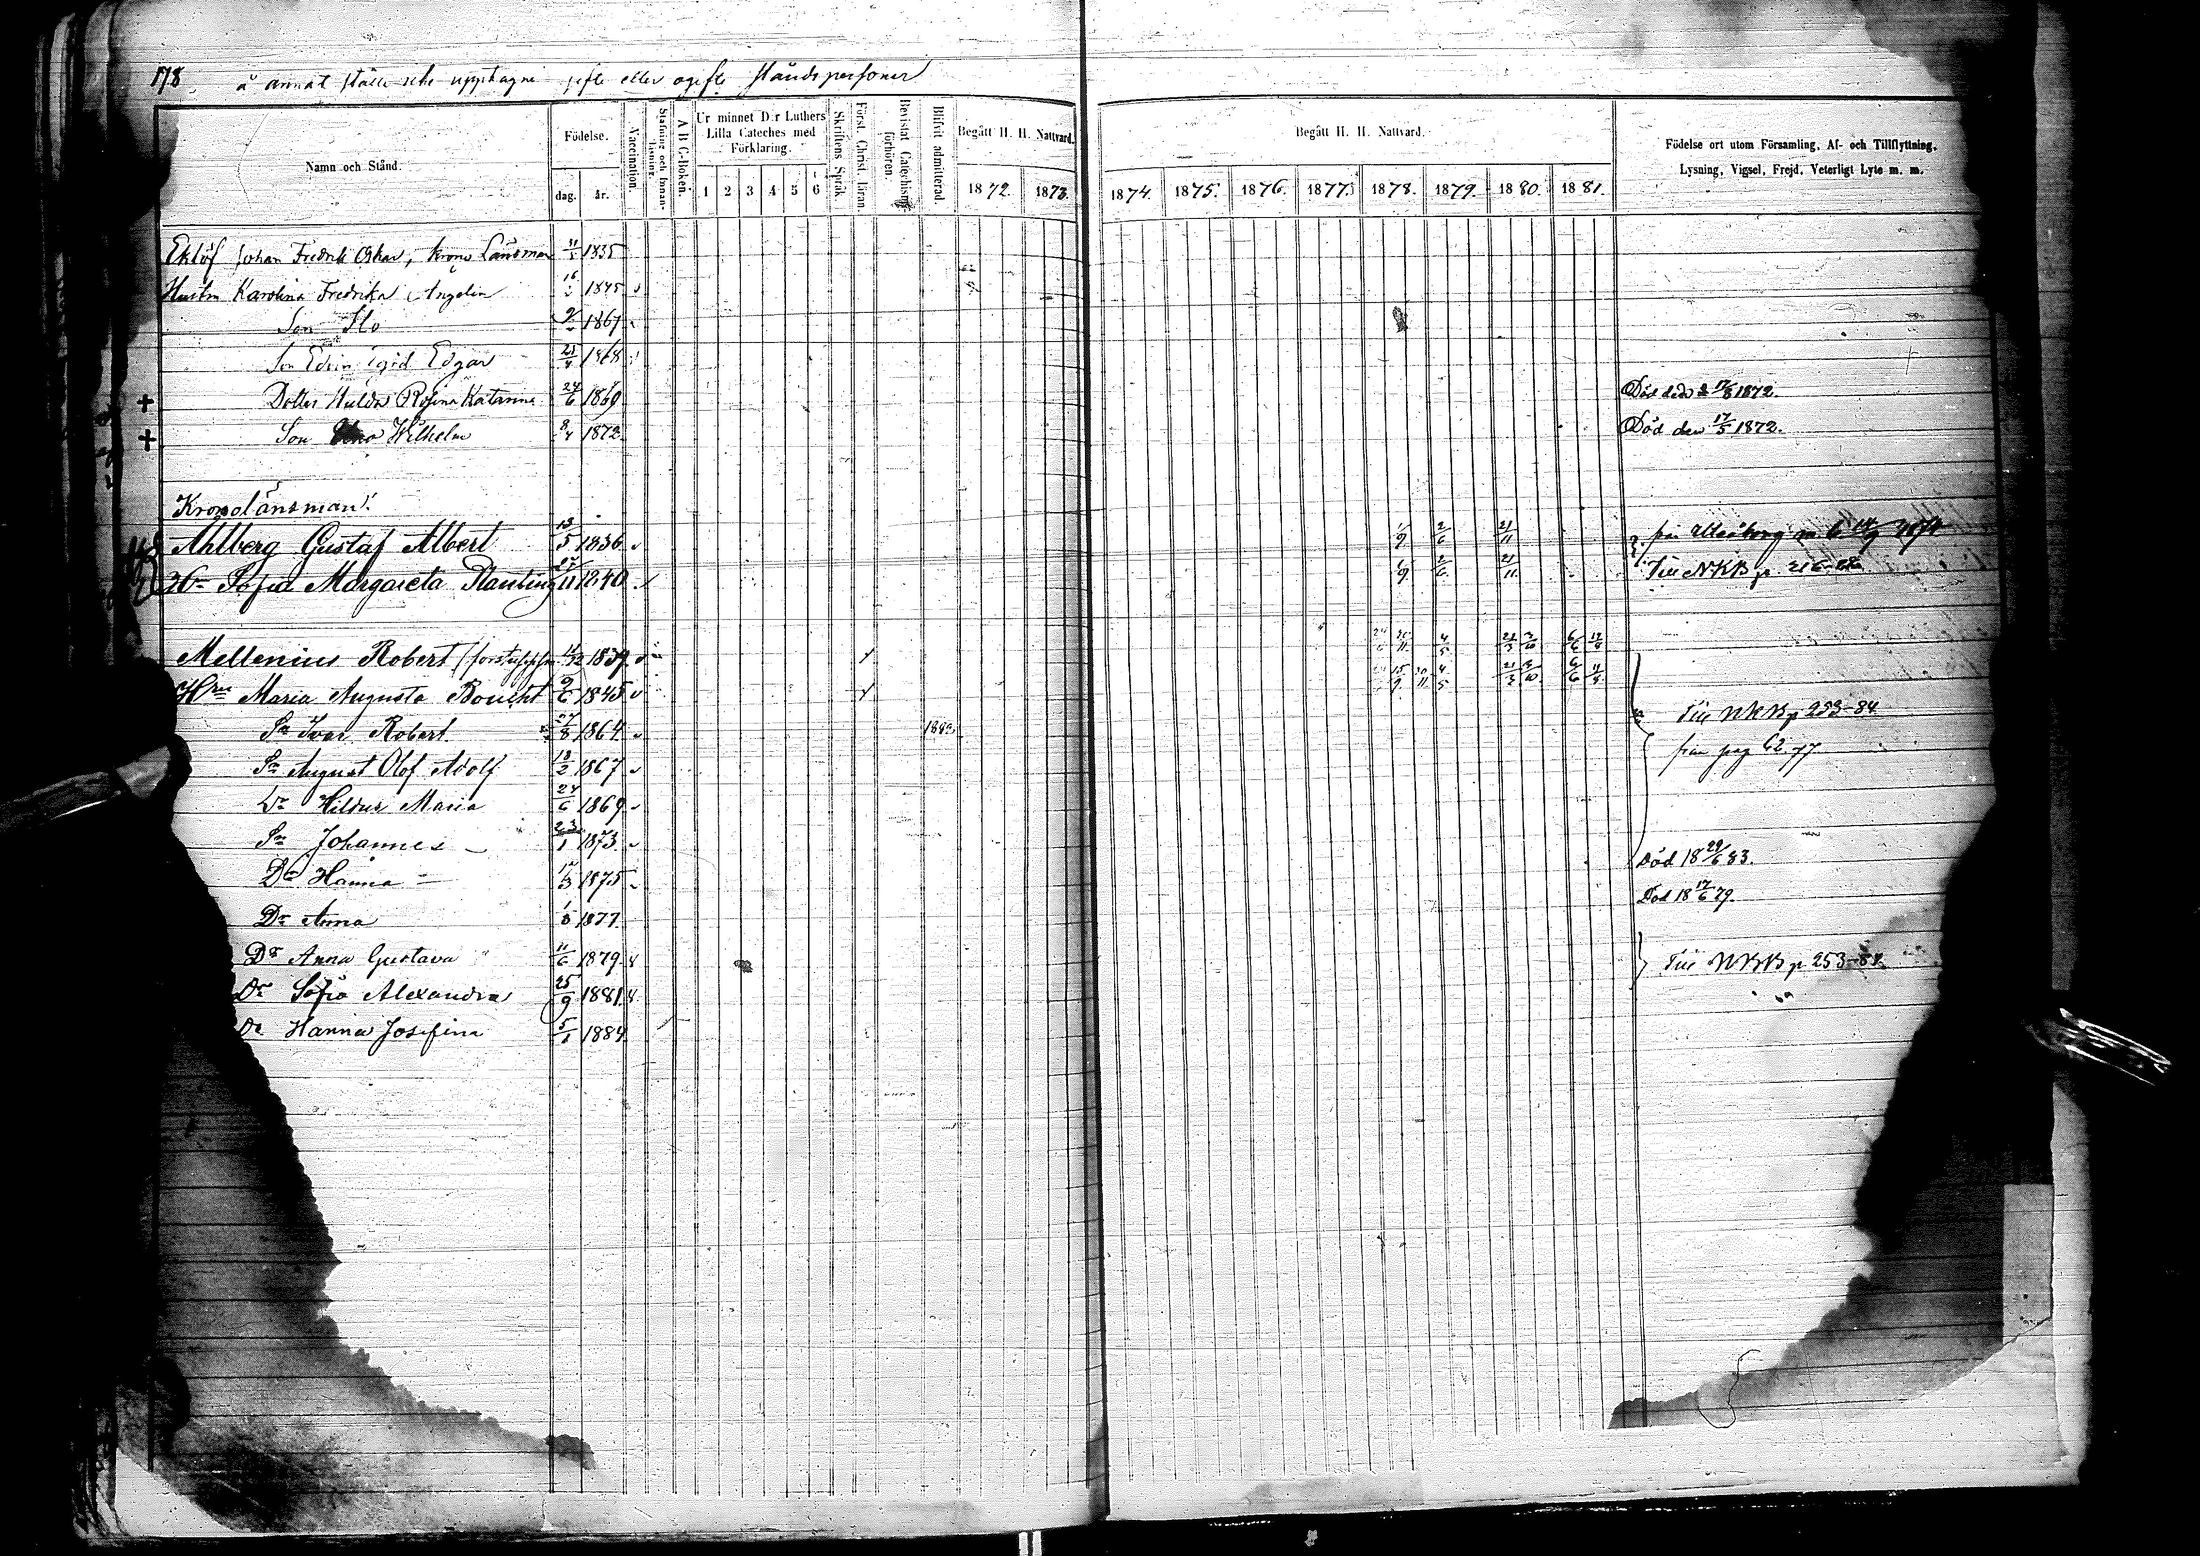 178 å annat ställe icke upptagne gifte eller ogifte ståndspersoner
Namn och Stånd.
Födelse.
dag. år.
Vaccination.
Stafning och Innanläsning.
A B C-Boken.
Ur minnet D:r Luthers Lilla Cateches med Förklaring.
1 2 3 4 5 6
Skriftens Språk.
Först. Christ. läran.
Bevistat Catechismiförhören.
Blifvit admitterad.
Begått H. H. Nattvard.
1872. 1873.
Begått H. H. Nattvard.
1874. 1875. 1876. 1877. 1878. 1879. 1880. 1881.
Födelse ort utom Församling, Af- och Tillflyttning, Lysning, Vigsel, Frejd, Veterligt Lyte m. m.
Eklöf Johan Fredrik Oskar, Krono Länsman 1835
Hustru Karolina Fredrika Angelin 16 1845
Son 1867
Son Edvin Egid Edgar 21/4 1868
+ Dotter Hulda Rosina Katarina 24/6 1869 Död den 17/8 1872.
+ Son Wilhelm 8/4 1872 Död den 17/5 1872.
Kronolänsman:
Ahlberg Gustaf Albert 13/5 1836 1/9 2/6 21/11 från Uleåborg
Hu Sofia Margareta Planting 11 1840 1/9 2/6 21/11 Till NKB p.
Mellenius Robert 1839 4/5 21/3 3/10 6/6
Hru Maria Augusta Boucht 9/6 1845 4/5 21/3 3/10 6/6
Sn Ivar Robert 27/8 1864 1882 Till NKB p 253-84
Sn August Olof Adolf 13/2 1867 från pag 62 77
Dr Hildur Maria 24/6 1869
Sn Johannes 23/1 1873
Dr Hanna 1875 Död 18 29/6 83.
Dr Anna 1877 Död 18 17/6 79.
Dr Anna Gustava 11/6 1879 Till NKB p 253-84
Dr Sofia Alexandra 25/9 1881
Dr Hanna Josefina 5/1 1884